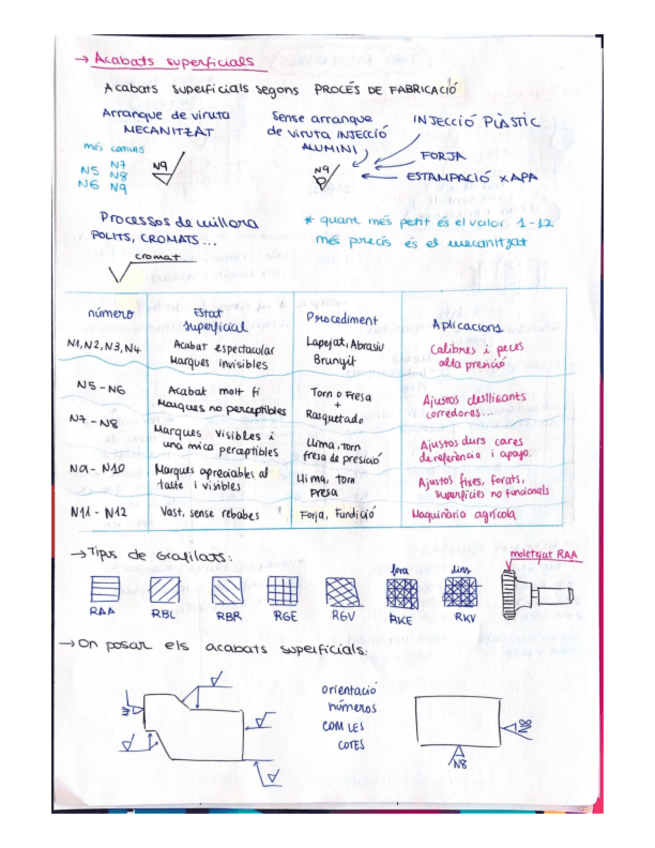 → Acabats superficials
Acabats superficials segons PROCÉS DE FABRICACIÓ
Arranque de viruta
MECANITZAT
més comuns
N5 N7
N8
N6 N9
N9
Sense arranque
de viruta INJECCIÓ
ALUMINI
N9
INJECCIÓ PLÀSTIC
FORJA
ESTAMPACIÓ XAPA
Processos de millora
POLITS, CROMATS...
cromat
* quant més petit és el valor 1-12
més precís és el mecanitzat
número
Estat
superficial
Procediment
Aplicacions
N1, N2, N3, N4
Acabat espectacular
Marques invisibles
Lapejat, Abrasiu
Brunyit
Calibres i peces
alta presició
N5 - N6
Acabat molt fi
Marques no perceptibles
Torn o Fresa
+
Rasquetado
Ajustos desllicants
corredores...
N7 - N8
Marques visibles i
una mica perceptibles
Llima, torn
fresa de presició
Ajustos durs cares
de referència i apoyo.
N9 - N10
Marques apreciables al
tacte i visibles
Llima, torn
fresa
Ajustos fixes, forats,
superfícies no funcionals
N11 - N12
Vast, sense rebabes
Forja, Fundició
Maquinària agrícola
→ Tipus de Grafilats:
fora
dins
moletejat RAA
RAA RBL RBR RGE RGV RKE RKV
→ On posar els acabats superficials:
orientació
números
COM LES
COTES
N8
N8